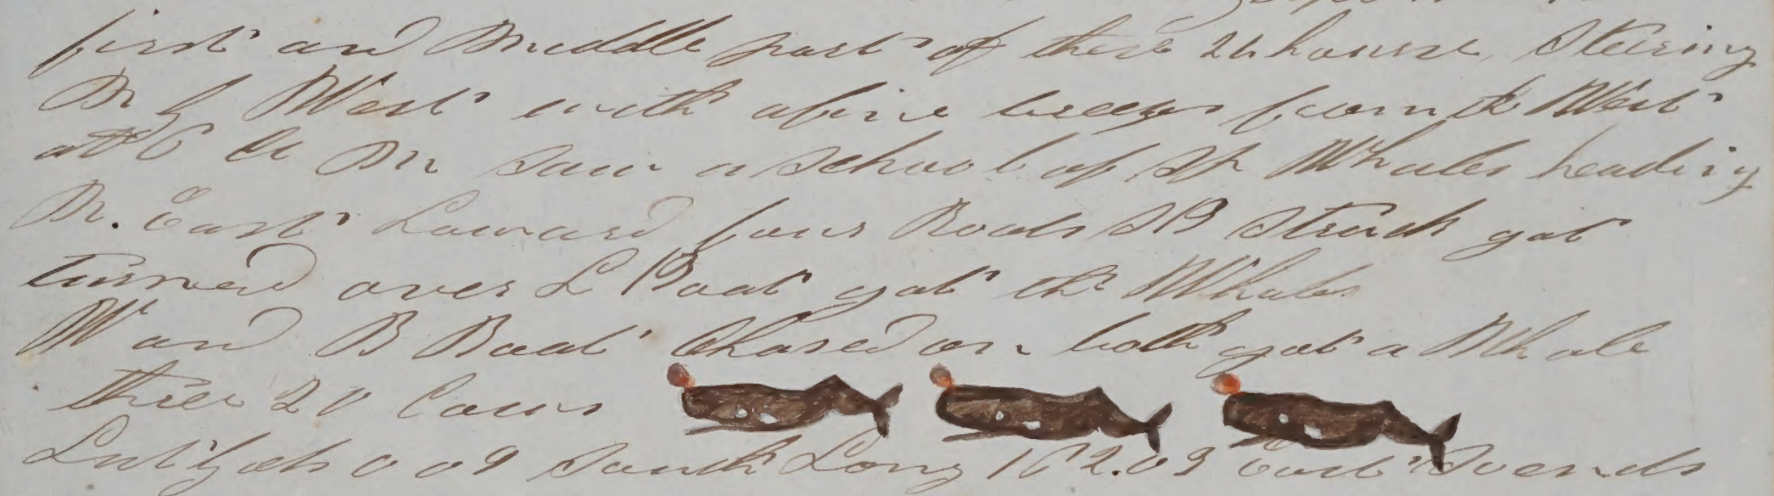 first and Middle part of these 24 hourse, Steering
N by West with a fine breeze from the West
at 6 A M saw a school of Sp Whales heading
N. East Loward four Boats SB Struck got
turned over L Boat got the Whales
W and B Boat Chased on both got a Whale
three 20 Cows
Lat by ob 0 09 South Long 162.03 East